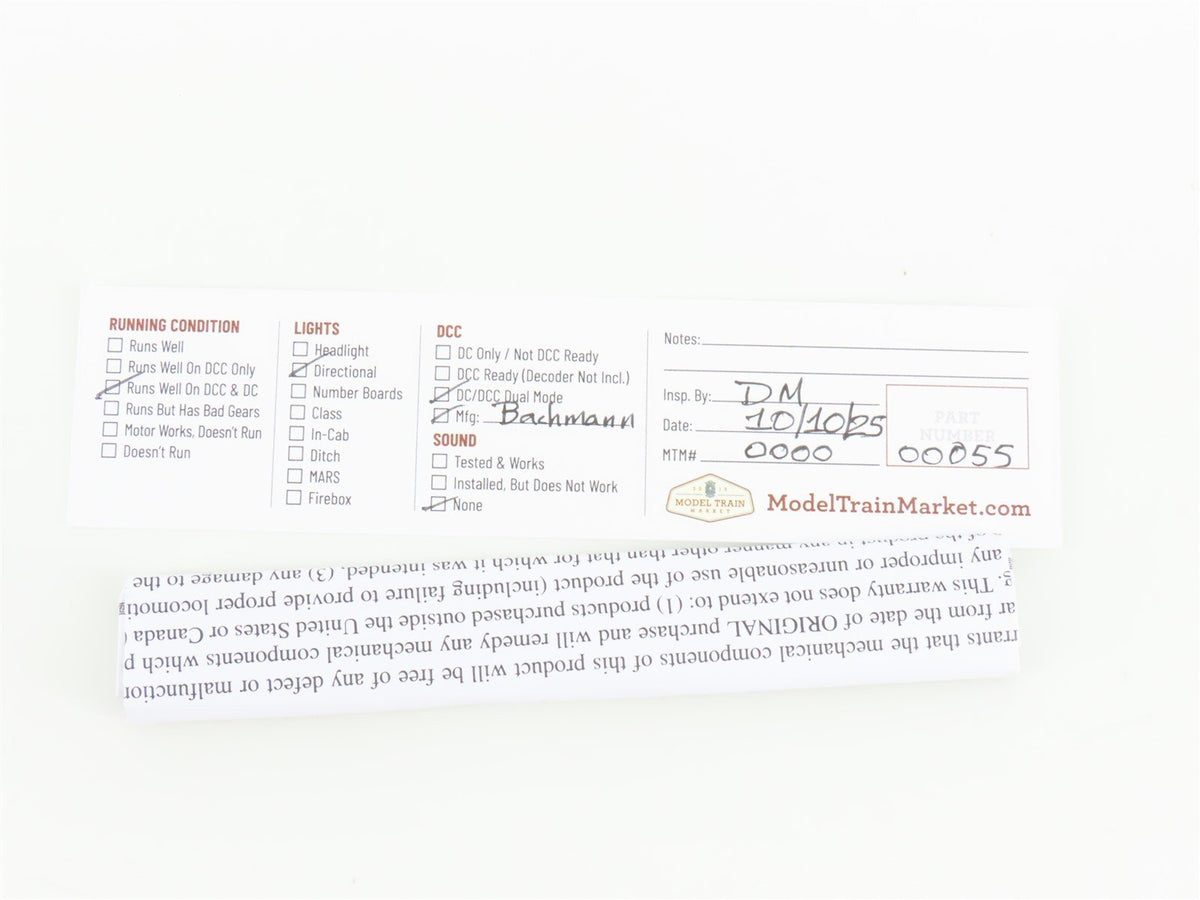 RUNNING CONDITION
Runs Well
Runs Well On DCC Only
Runs Well On DCC & DC
Runs But Has Bad Gears
Motor Works, Doesn't Run
Doesn't Run
LIGHTS
Headlight
Directional
Number Boards
Class
In-Cab
Ditch
MARS
Firebox
DCC
DC Only / Not DCC Ready
DCC Ready (Decoder Not Incl.)
DC/DCC Dual Mode
Mfg: Bachmann
SOUND
Tested & Works
Installed, But Does Not Work
None
Notes:
Insp. By: DM
Date: 10/10/25
MTM# 0000
PART
NUMBER
00055
MODEL TRAIN
MARKET
ModelTrainMarket.com
rrants that the mechanical components of this product will be free of any defect or malfunction
ar from the date of ORIGINAL purchase and will remedy any mechanical components which p
g. This warranty does not extend to: (1) products purchased outside the United States or Canada (
any improper or unreasonable use of the product (including failure to provide proper locomoti
of the product in any manner other than that for which it was intended. (3) any damage to the